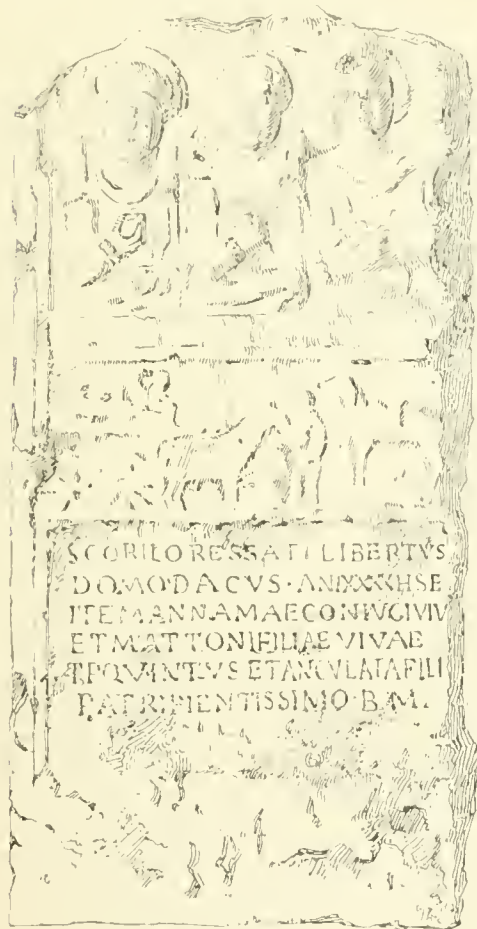 SCORILO RESSATI LIBERTVS
DOMO·DACVS·AN LXXXX H S E
ITEM ANNAMAE CONIVGI VIV
ET MATTONI FILIAE VIVAE
T·F·QVINTVS ET ANCVLATA FILI
PATRI PIENTISSIMO·B·M·